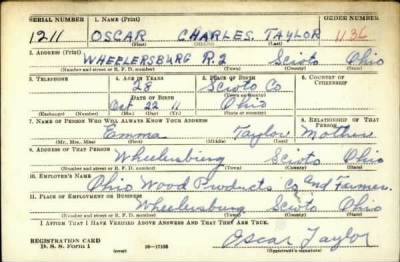 SERIAL NUMBER 1. NAME (Print) ORDER NUMBER
1211 OSCAR CHARLES TAYLOR 1136
(First) (Middle) (Last)
2. ADDRESS (Print)
WHEELERSBURG R.2 Scioto Ohio
(Number and street or R. F. D. number) (Town) (County) (State)
3. TELEPHONE 4. AGE IN YEARS 5. PLACE OF BIRTH 6. COUNTRY OF CITIZENSHIP
28 Scioto Co
DATE OF BIRTH
Oct 22 11 Ohio
(Mo.) (Day) (Yr.) (State or country)
7. NAME OF PERSON WHO WILL ALWAYS KNOW YOUR ADDRESS 8. RELATIONSHIP OF THAT PERSON
Emma Taylor Mother
(Mr., Mrs., Miss) (First) (Middle) (Last)
9. ADDRESS OF THAT PERSON
Wheelersburg Scioto Ohio
(Number and street or R. F. D. number) (Town) (County) (State)
10. EMPLOYER'S NAME
Ohio Wood Products Co and Farmer
11. PLACE OF EMPLOYMENT OR BUSINESS
Wheelersburg Scioto Ohio
(Number and street or R. F. D. number) (Town) (County) (State)
I AFFIRM THAT I HAVE VERIFIED ABOVE ANSWERS AND THAT THEY ARE TRUE.
REGISTRATION CARD
D. S. S. Form 1 (over) 16—17105
Oscar Taylor
(Registrant's signature)